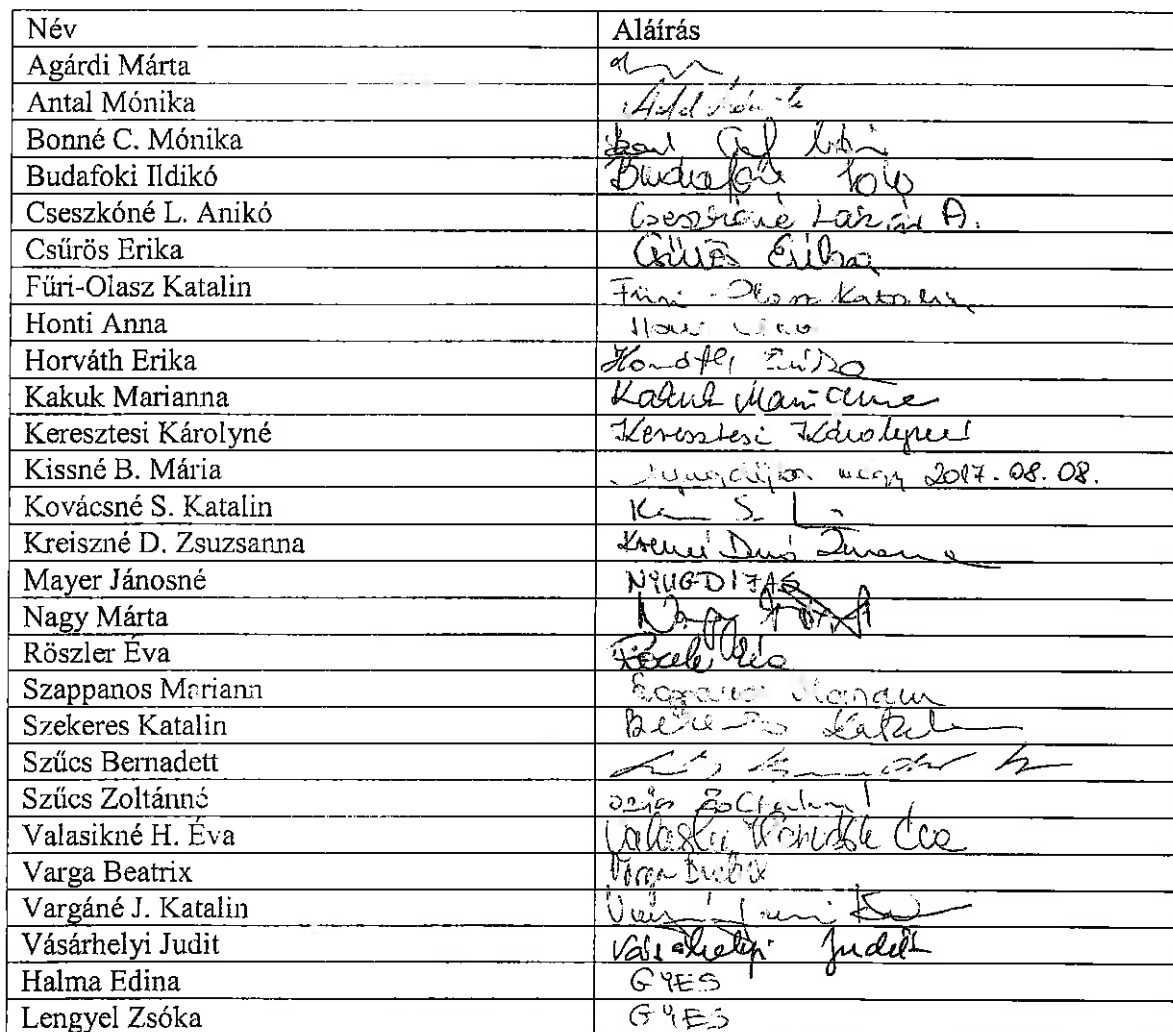 Név Aláírás
Agárdi Márta
Antal Mónika
Bonné C. Mónika
Budafoki Ildikó Budafoki
Cseszkóné L. Anikó Cseszkóné László A.
Csűrös Erika Csűrös Erika
Füri-Olasz Katalin Füri-Olasz Katalin
Honti Anna
Horváth Erika Horváth Erika
Kakuk Marianna Kakuk Marianna
Keresztesi Károlyné Keresztesi Károlyné
Kissné B. Mária nyugdíjba megy 2017.08.08.
Kovácsné S. Katalin
Kreiszné D. Zsuzsanna
Mayer Jánosné NYUGDÍJAS
Nagy Márta Nagy Márta
Röszler Éva Éva
Szappanos Mariann Szappanos Mariann
Szekeres Katalin Katalin
Szűcs Bernadett
Szűcs Zoltánné Szűcs Zoltánné
Valasikné H. Éva Éva
Varga Beatrix Varga Beatrix
Vargáné J. Katalin
Vásárhelyi Judit Vásárhelyi Judit
Halma Edina GYES
Lengyel Zsóka GYES